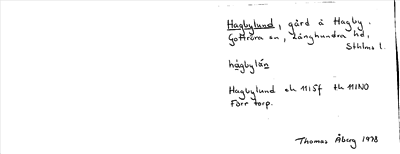 Hagbylund, gård å Hagby.
Gottröra sn, Långhundra hd,
Sthlms l.
hágbylán
Hagbylund ek 11I5f tk 11INO
Förr torp.
Thomas Åberg 1978